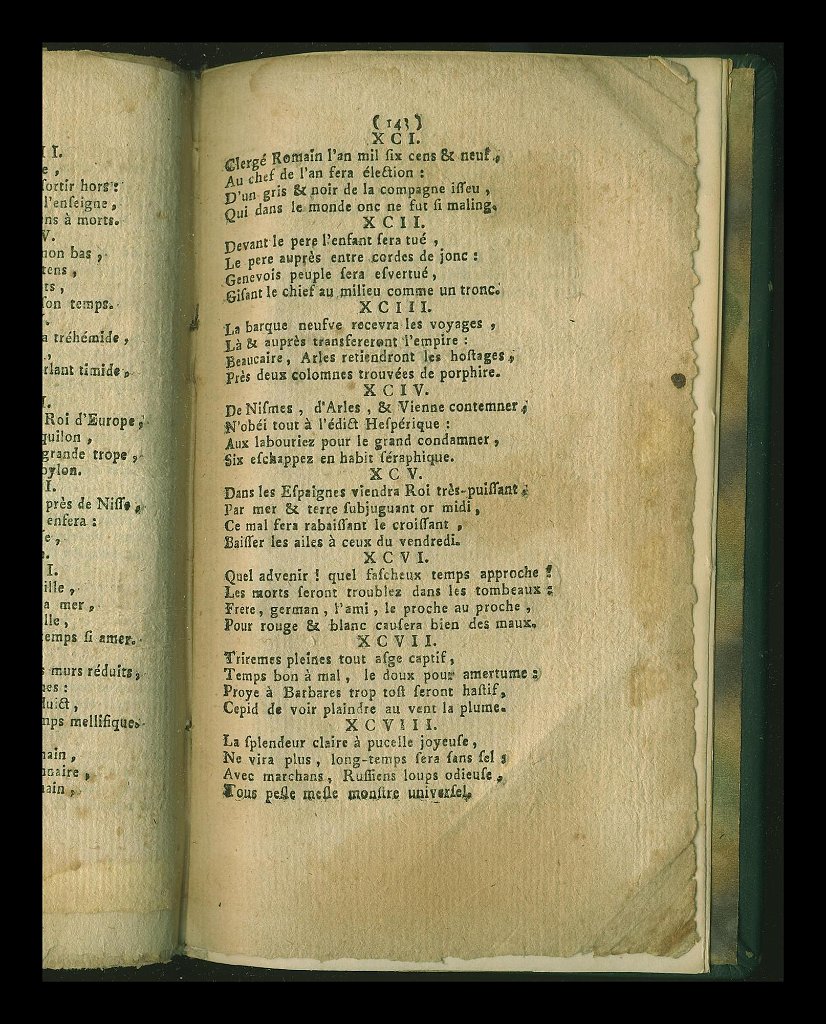 I I.
e ,
ſortir hors :
l'enſeigne ,
ns à morts.
V.
non bas ,
tens ,
ts ,
ſon temps.
a tréhémide ,
rlant timide ,
I.
Roi d'Europe ,
quilon ,
grande trope ,
bylon.
I.
près de Niſſe ,
enſera :
e ,
I.
ille ,
a mer ,
lle ,
temps ſi amer.
s murs réduits ,
nes :
duict ,
mps mellifique.
main ,
nnaire ,
main ,
( 143 )
X C I.
Clergé Romain l'an mil ſix cens & neuf ,
Au chef de l'an ſera élection :
D'un gris & noir de la compagne iſſeu ,
Qui dans le monde onc ne fut ſi maling.
X C I I.
Devant le pere l'enfant ſera tué ,
Le pere auprès entre cordes de jonc :
Genevois peuple ſera eſvertué ,
Giſant le chief au milieu comme un tronc.
X C I I I.
La barque neufve recevra les voyages ,
Là & auprès transfereront l'empire :
Beaucaire , Arles retiendront les hoſtages ,
Près deux colomnes trouvées de porphire.
X C I V.
De Niſmes , d'Arles , & Vienne contemner ,
N'obéi tout à l'édict Heſpérique :
Aux labouriez pour le grand condamner ,
Six eſchappez en habit ſéraphique.
X C V.
Dans les Eſpaignes viendra Roi très-puiſſant ,
Par mer & terre ſubjuguant or midi ,
Ce mal fera rabaiſſant le croiſſant ,
Baiſſer les ailes à ceux du vendredi.
X C V I.
Quel advenir ! quel faſcheux temps approche !
Les morts ſeront troublez dans les tombeaux :
Frere , german , l'ami , le proche au proche ,
Pour rouge & blanc cauſera bien des maux.
X C V I I.
Triremes pleines tout aſge captif ,
Temps bon à mal , le doux pour amertume :
Proye à Barbares trop toſt ſeront haſtif ,
Cepid de voir plaindre au vent la plume.
X C V I I I.
La ſplendeur claire à pucelle joyeuſe ,
Ne vira plus , long-temps ſera ſans ſel ;
Avec marchans , Ruſſiens loups odieuſe ,
Tous peſle meſle monſtre univerſel.